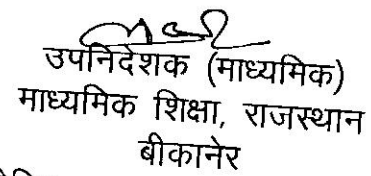 उपनिदेशक (माध्यमिक)
माध्यमिक शिक्षा, राजस्थान
बीकानेर